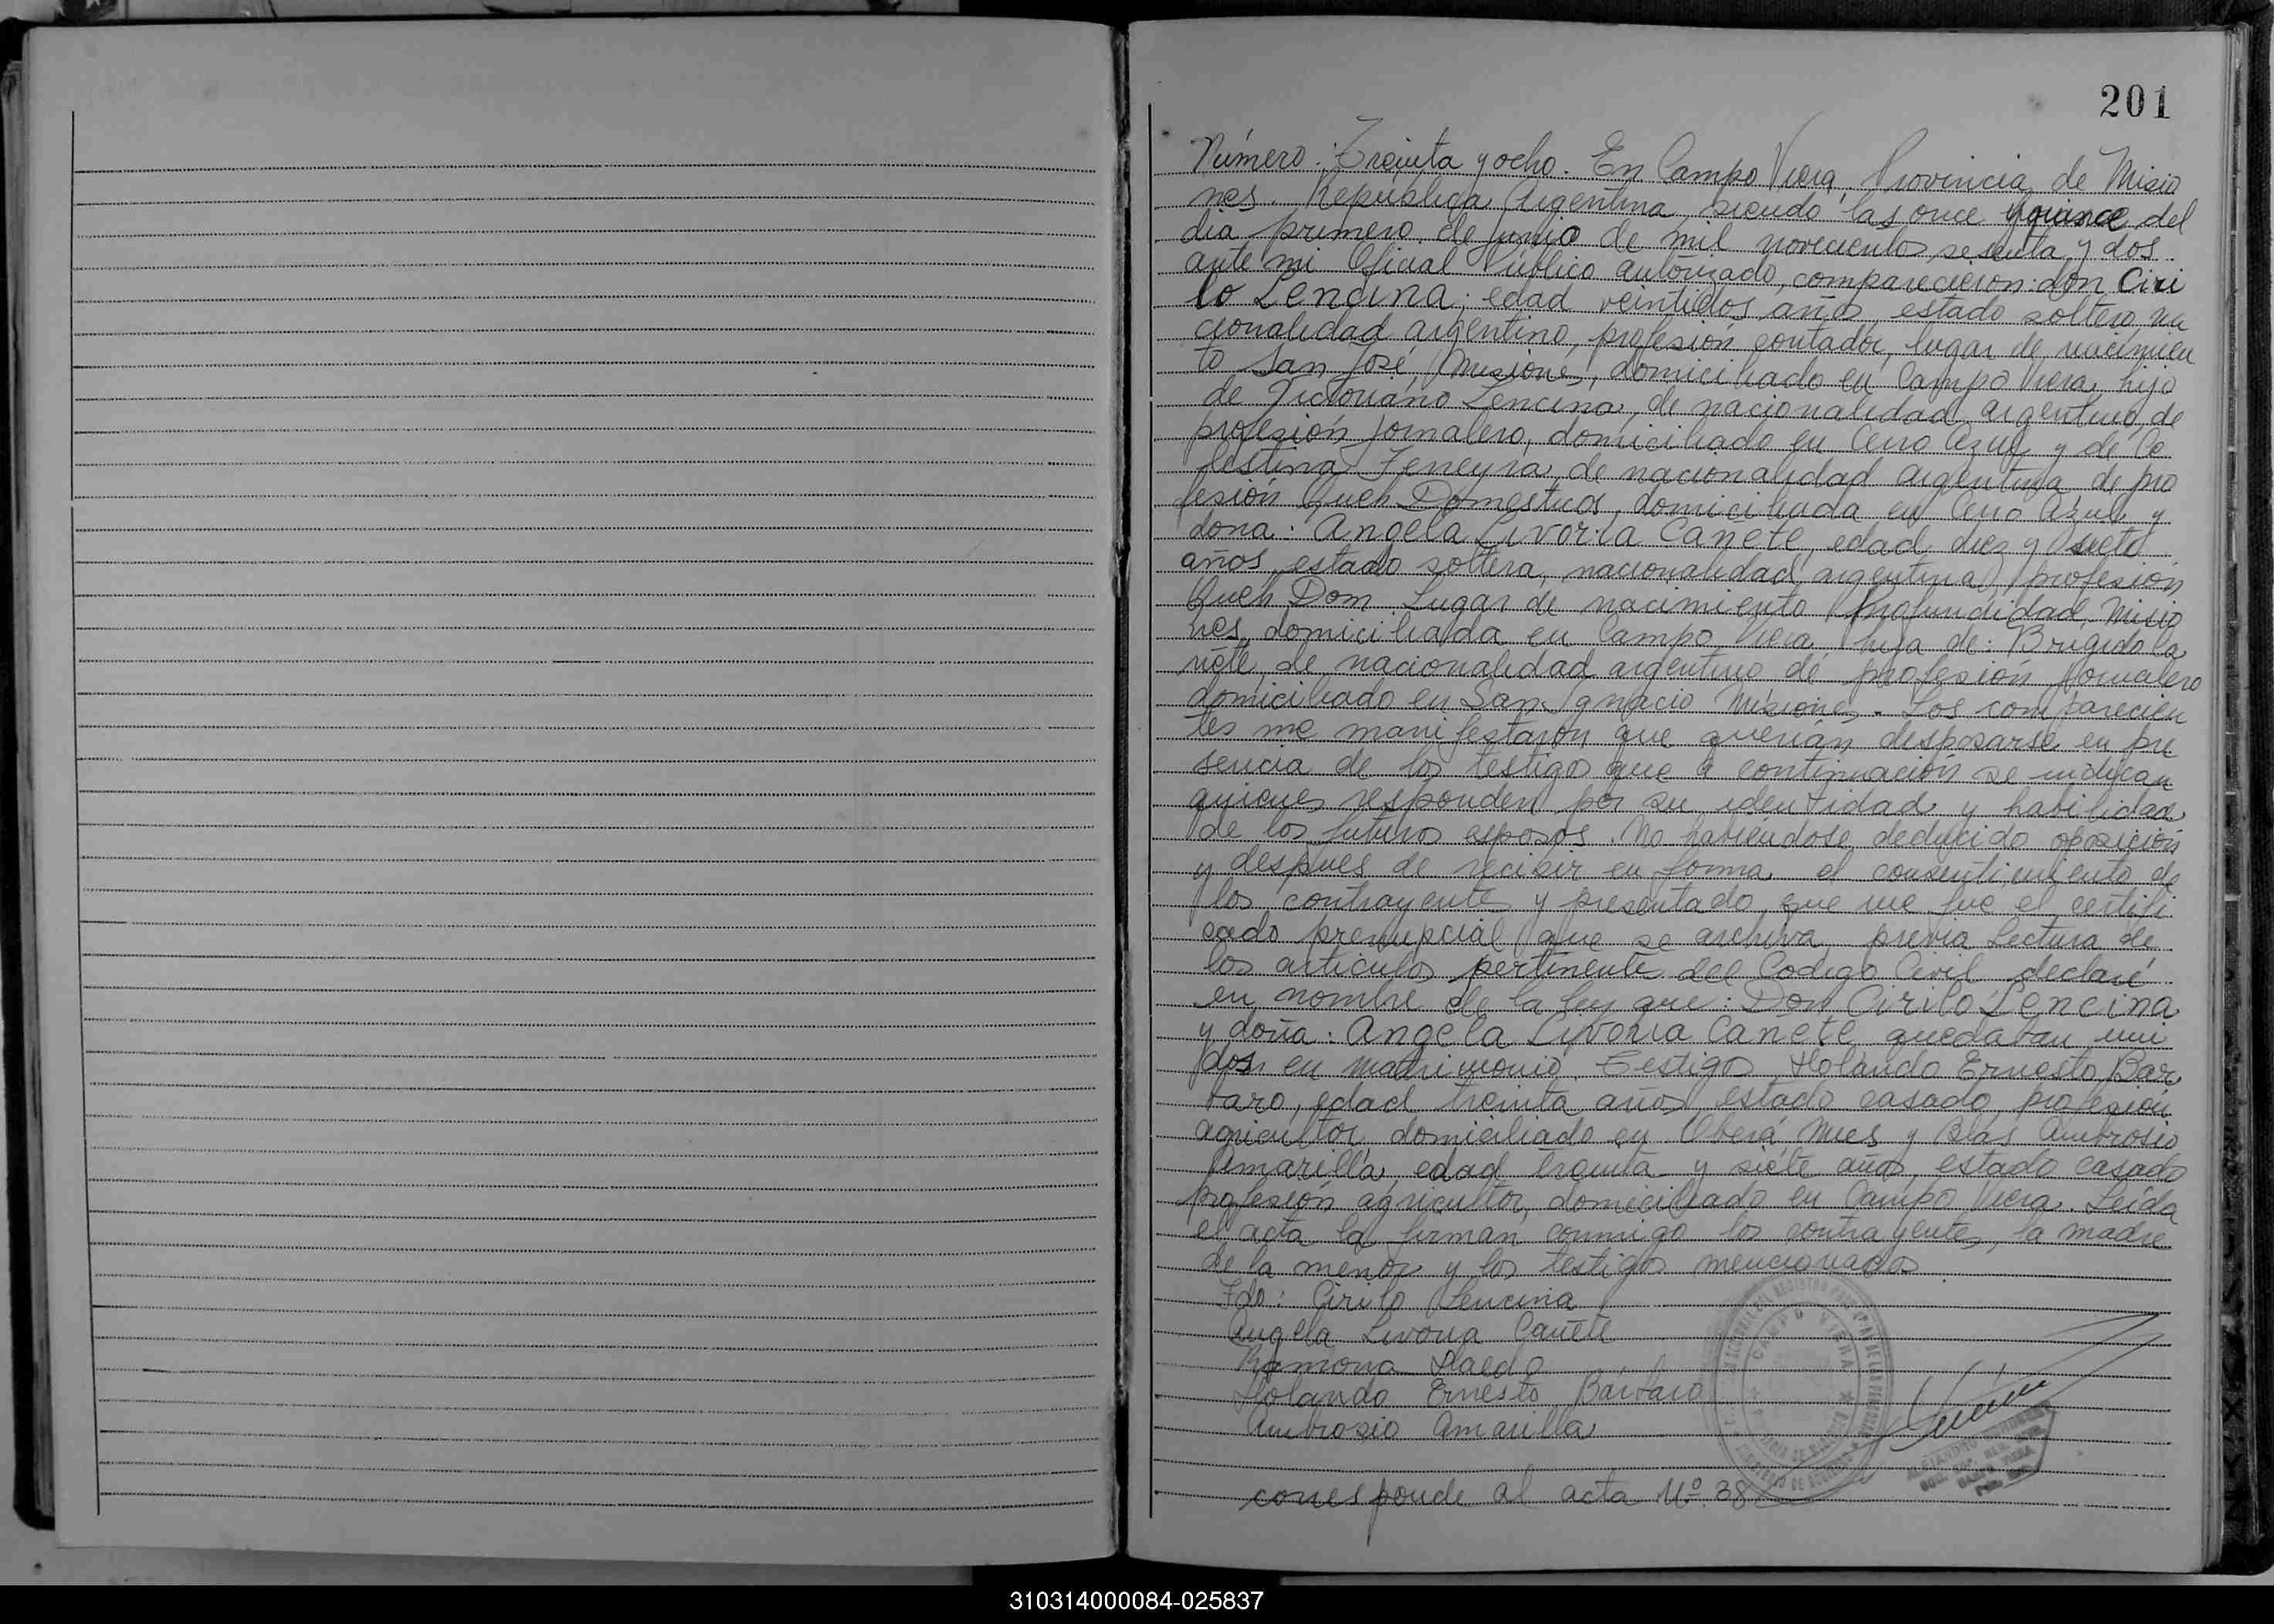 201
Número: Treinta y ocho. En Campo Viera, Provincia de Misio
nes. República Argentina, siendo las once y quince del
día primero de junio de mil novecientos sesenta y dos
ante mi Oficial Público autorizado, comparecieron: don Ciri
lo Lencina; edad veintidos años, estado soltero, na
cionalidad argentino, profesión contador, lugar de nacimien
to San José, Misiones, domiciliado en Campo Viera, hijo
de Victoriano Lencina, de nacionalidad argentino, de
profesión jornalero, domiciliado en Cerro Azul y de Ce
lestina Ferreyra, de nacionalidad argentina, de pro
fesión Queh Domesticos, domiciliada en Cerro Azul y
dona: Angela Livoria Cañete, edad diez y siete
años, estado soltera, nacionalidad argentina, profesión
Queh Dom. Lugar de nacimiento Profundidad, Misio
nes, domiciliada en Campo Viera, hija de: Brigido Ca
ñete, de nacionalidad argentino de profesión jornalero
domiciliado en San Ignacio Misiones. Los comparecien
tes me manifestaron que querian desposarse en pre
sencia de los testigos que a continuación se indican
quienes responden por su identidad y habilidad
de los futuros esposos. No habiendose deducido oposición
y despues de recibir en forma el consentimiento de
los contrayentes y presentado que me fue el certifi
cado prenupcial que se archiva, previa lectura de
los articulos pertinente del Codigo Civil declaré
en nombre de la ley que: Don Cirilo Lencina
y doña: Angela Livoria Cañete quedaban uni
dos en matrimonio. Testigos Holando Ernesto Bar
baro, edad treinta años, estado casado, profesión
agricultor, domiciliado en Oberá Mnes y Blás Ambrosio
Amarilla, edad treinta y siete años, estado casado
profesión agricultor, domiciliado en Campo Viera. Leída
el acta la firman conmigo los contrayentes, la madre
de la menor y los testigos mencionados
Fdo: Cirilo Lencina
Angela Livoria Cañete
Ramona Haedo
Holando Ernesto Bárbaro
Ambrosio Amarilla
CAMPO VIERA
corresponde al acta Nº 38
310314000084-025837